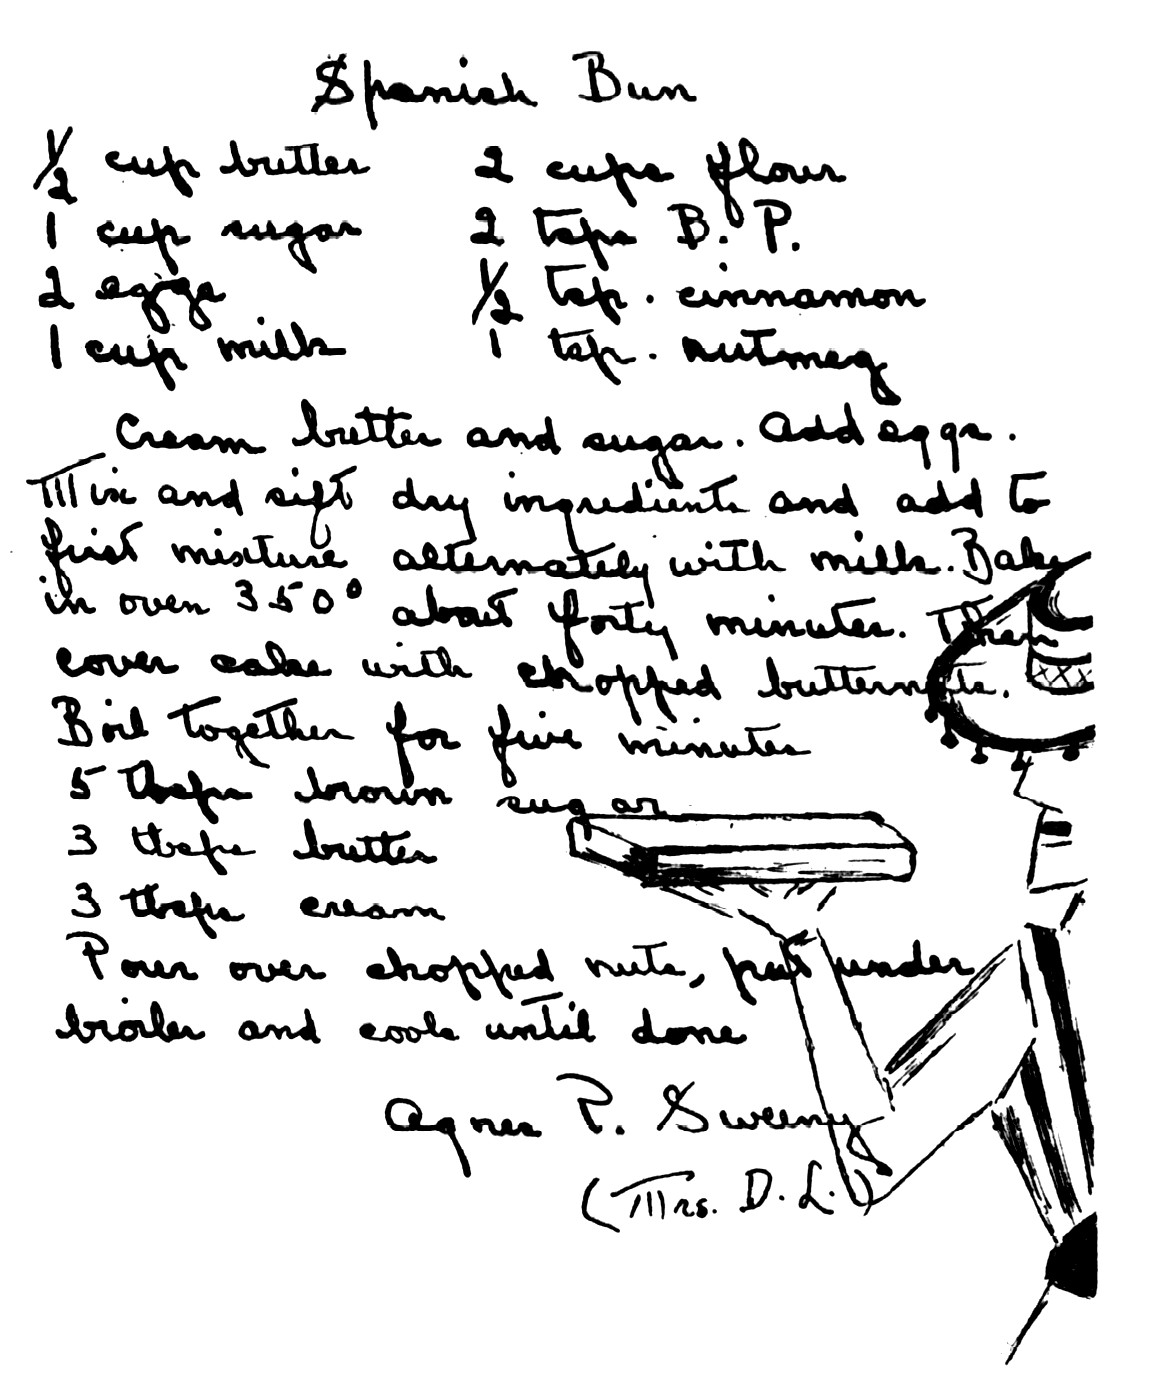 Spanish Bun
1/2 cup butter 2 cups flour
1 cup sugar 2 tsps B. P.
2 eggs 1/2 tsp. cinnamon
1 cup milk 1 tsp. nutmeg
Cream butter and sugar. Add eggs.
Mix and sift dry ingredients and add to
first mixture alternately with milk. Bake
in oven 350° about forty minutes. Then
cover cake with chopped butternuts.
Boil together for five minutes
5 tbsps brown sugar
3 tbsps butter
3 tbsps cream
Pour over chopped nuts, put under
broiler and cook until done
Agnes P. Sweeny
(Mrs. D. L.)